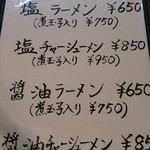 塩ラーメン ¥650
(煮玉子入り ¥750)
塩チャーシューメン ¥850
(煮玉子入り ¥950)
醤油ラーメン ¥650
(煮玉子入り ¥750)
醤油チャーシューメン ¥85